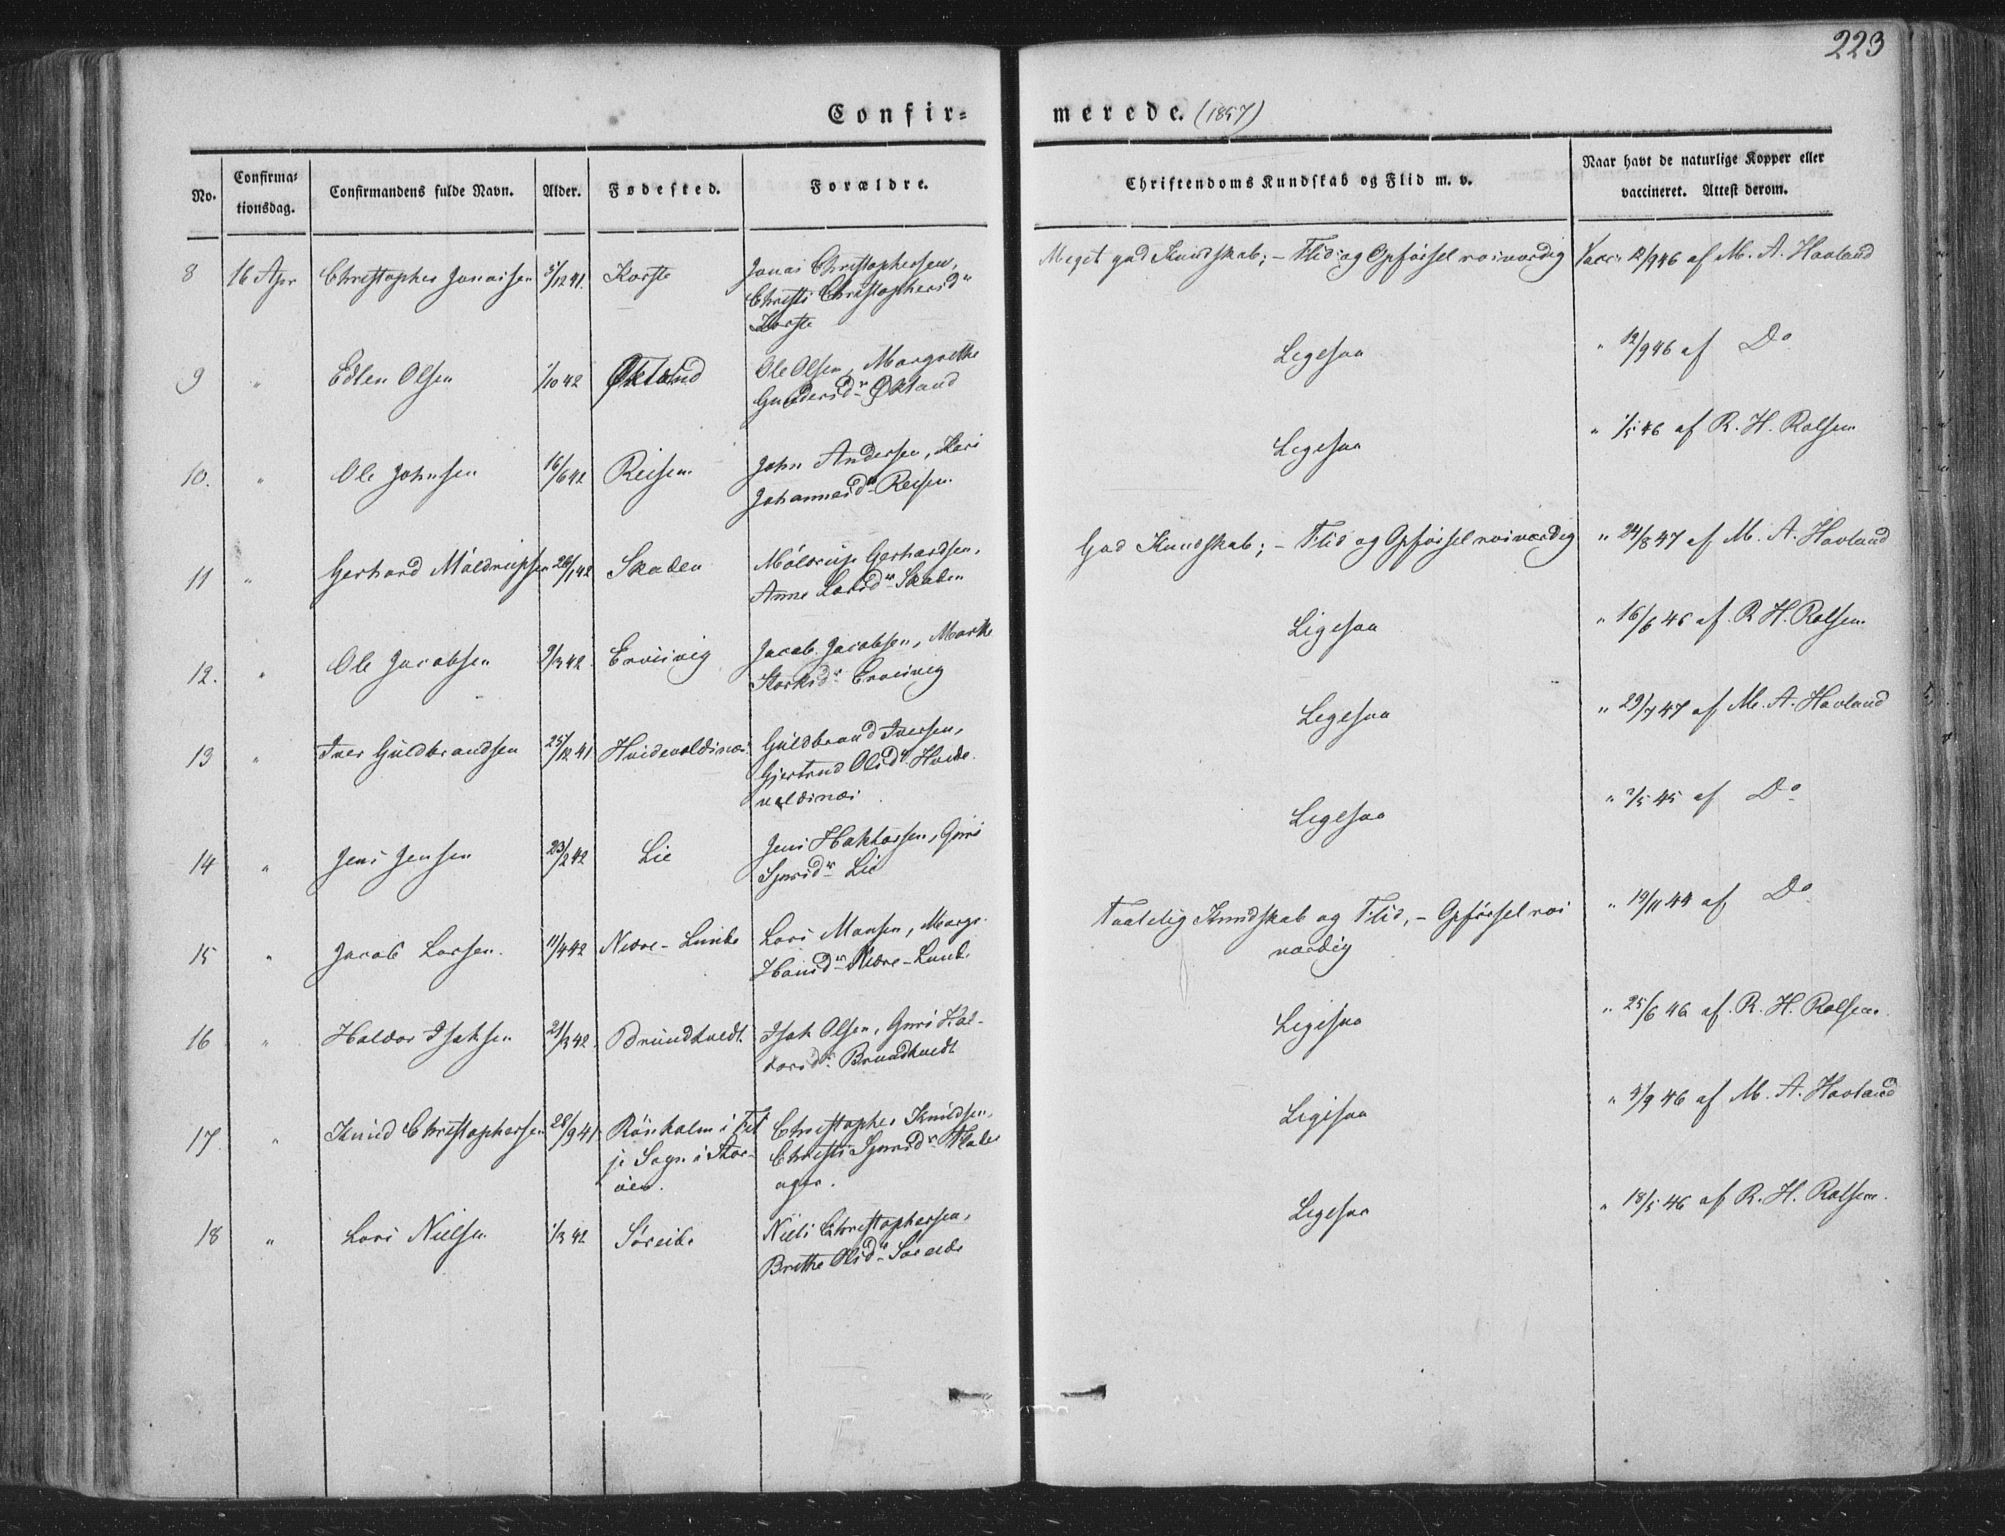 223
Confirmerede. (1857)
No. Confirmationsdag. Confirmandens fulde Navn. Alder. Fødested. Forældre. Christendoms Kundskab og Flid m. v. Naar havt de naturlige Kopper eller vaccineret. Attest derom.
8 16 Apr Christopher Jonassen 5/12 41. Korsto Jonas Christophersen, Meget god Kundskab; – Flid og Opførsel roesværdig Vacc. 12/9 46 af M. A. Havland
Christi Christophersd
Korsto
9 " Edlen Olsen 1/10 42 Økland Ole Olsen, Margrethe Ligesaa " 12/9 46 af Do
Gundersd Økland
10. " Ole Johnsen 16/6 42 Reisen John Andersen, Kari Ligesaa " 1/5 46 af R. H. Rolfsen
Johannesd Reisen.
11 " Gerhard Möldrupsen 26/1 42 Skaden Möldrup Gerhardsen, God Kundskab; – Flid og Opførsel roesværdig " 24/8 47 af M. A. Havland
Anne Larsd Skaden
12. " Ole Jacobsen 9/3 42. Ervesvig Jacob Jacobsen, Marthe Ligesaa " 16/6 46 af R. H. Rolfsen
Ervesvig
13 " Iver Guldbrandsen 25/12 41 Hvidevoldsnæs Guldbrand Iversen, Ligesaa " 29/7 47 af M. A. Havland
Gjertrud Olsd Hvide
voldsnæs
14 " Jens Jensen 23/2 42 Lie Jens Haktorsen, Guro Ligesaa " 2/5 45 af Do
Sjursd Lie
15 " Jacob Larsen. 11/4 42 Nedre-Lunde Lars Monsen, Margr. Taalelig Kundskab og Flid, – Opførsel roes " 19/11 44 af Do
Hansd Nedre-Lunde værdig
16 " Haldor Isaksen 21/3 42. Brundtvedt Isak Olsen, Guro Hal- Ligesaa " 25/6 46 af R. H. Rolfsen.
dorsd Brundtvedt
17. " Knud Christophersen 28/9 41. Rösholm i Fit Christopher Knudsen, Ligesaa " 4/9 46 af M. A. Havland
je Sogn i Stor- Christi Sjursd
öen.
18 " Lars Nielsen 1/3 42 Søreide Niels Christophersen, Ligesaa " 18/5 46 af R. H. Rolfsen.
Brithe Olsd Søreide